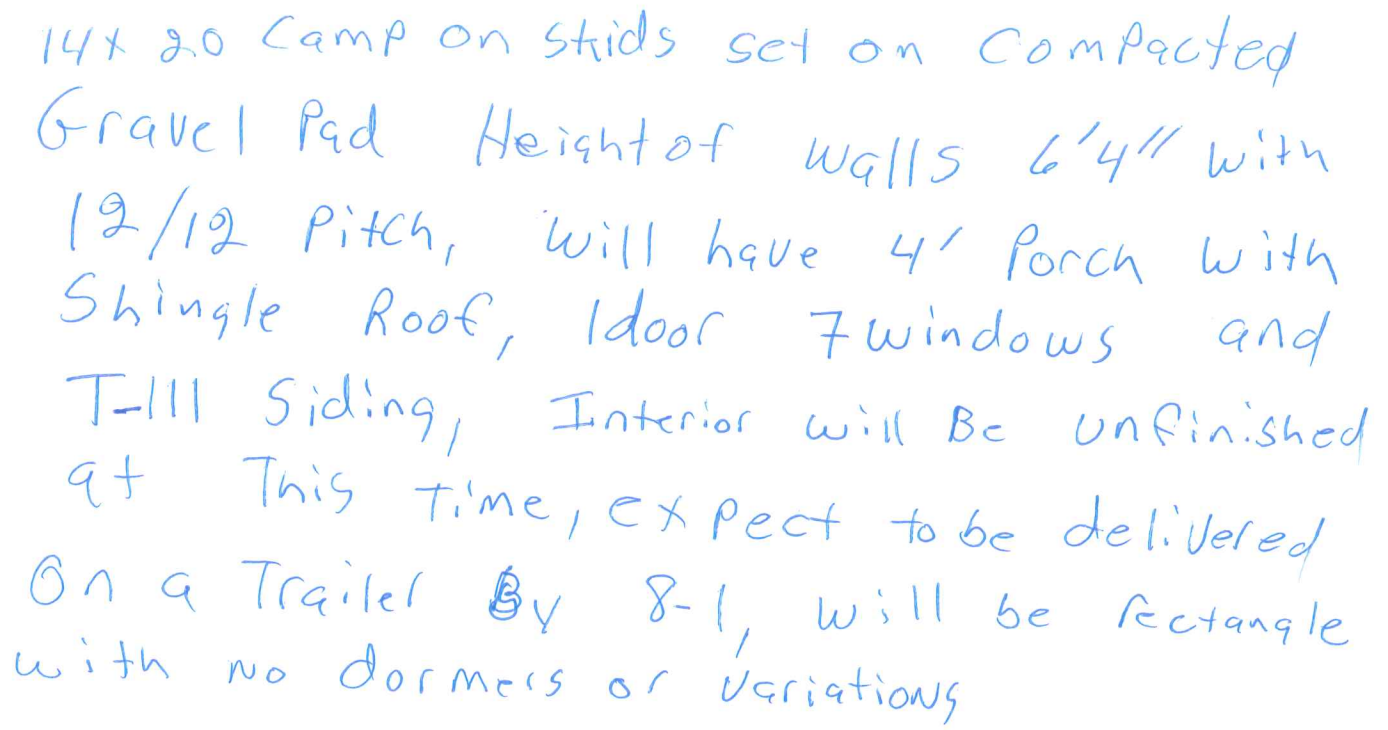 14x 20 Camp on skids set on Compacted
Gravel Pad Height of walls 6'4" with
12/12 Pitch, will have 4' Porch with
Shingle Roof, 1 door 7 windows and
T-111 Siding, Interior will Be unfinished
at This Time, expect to be delivered
On a Trailer By 8-1, will be rectangle
with no dormers or variations